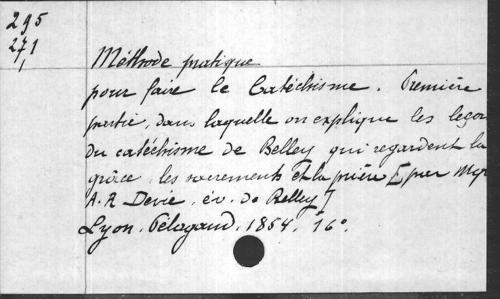 295
271
1
Méthode pratique
pour faire le Catéchisme. Première
partie, dans laquelle on explique les leçon
du catéchisme de Belley qui regardent la
grâce, les sacrements et la prière [par Mgr
A. R Devie, év. de Belley]
Lyon, Pélagaud, 1854, 16°.